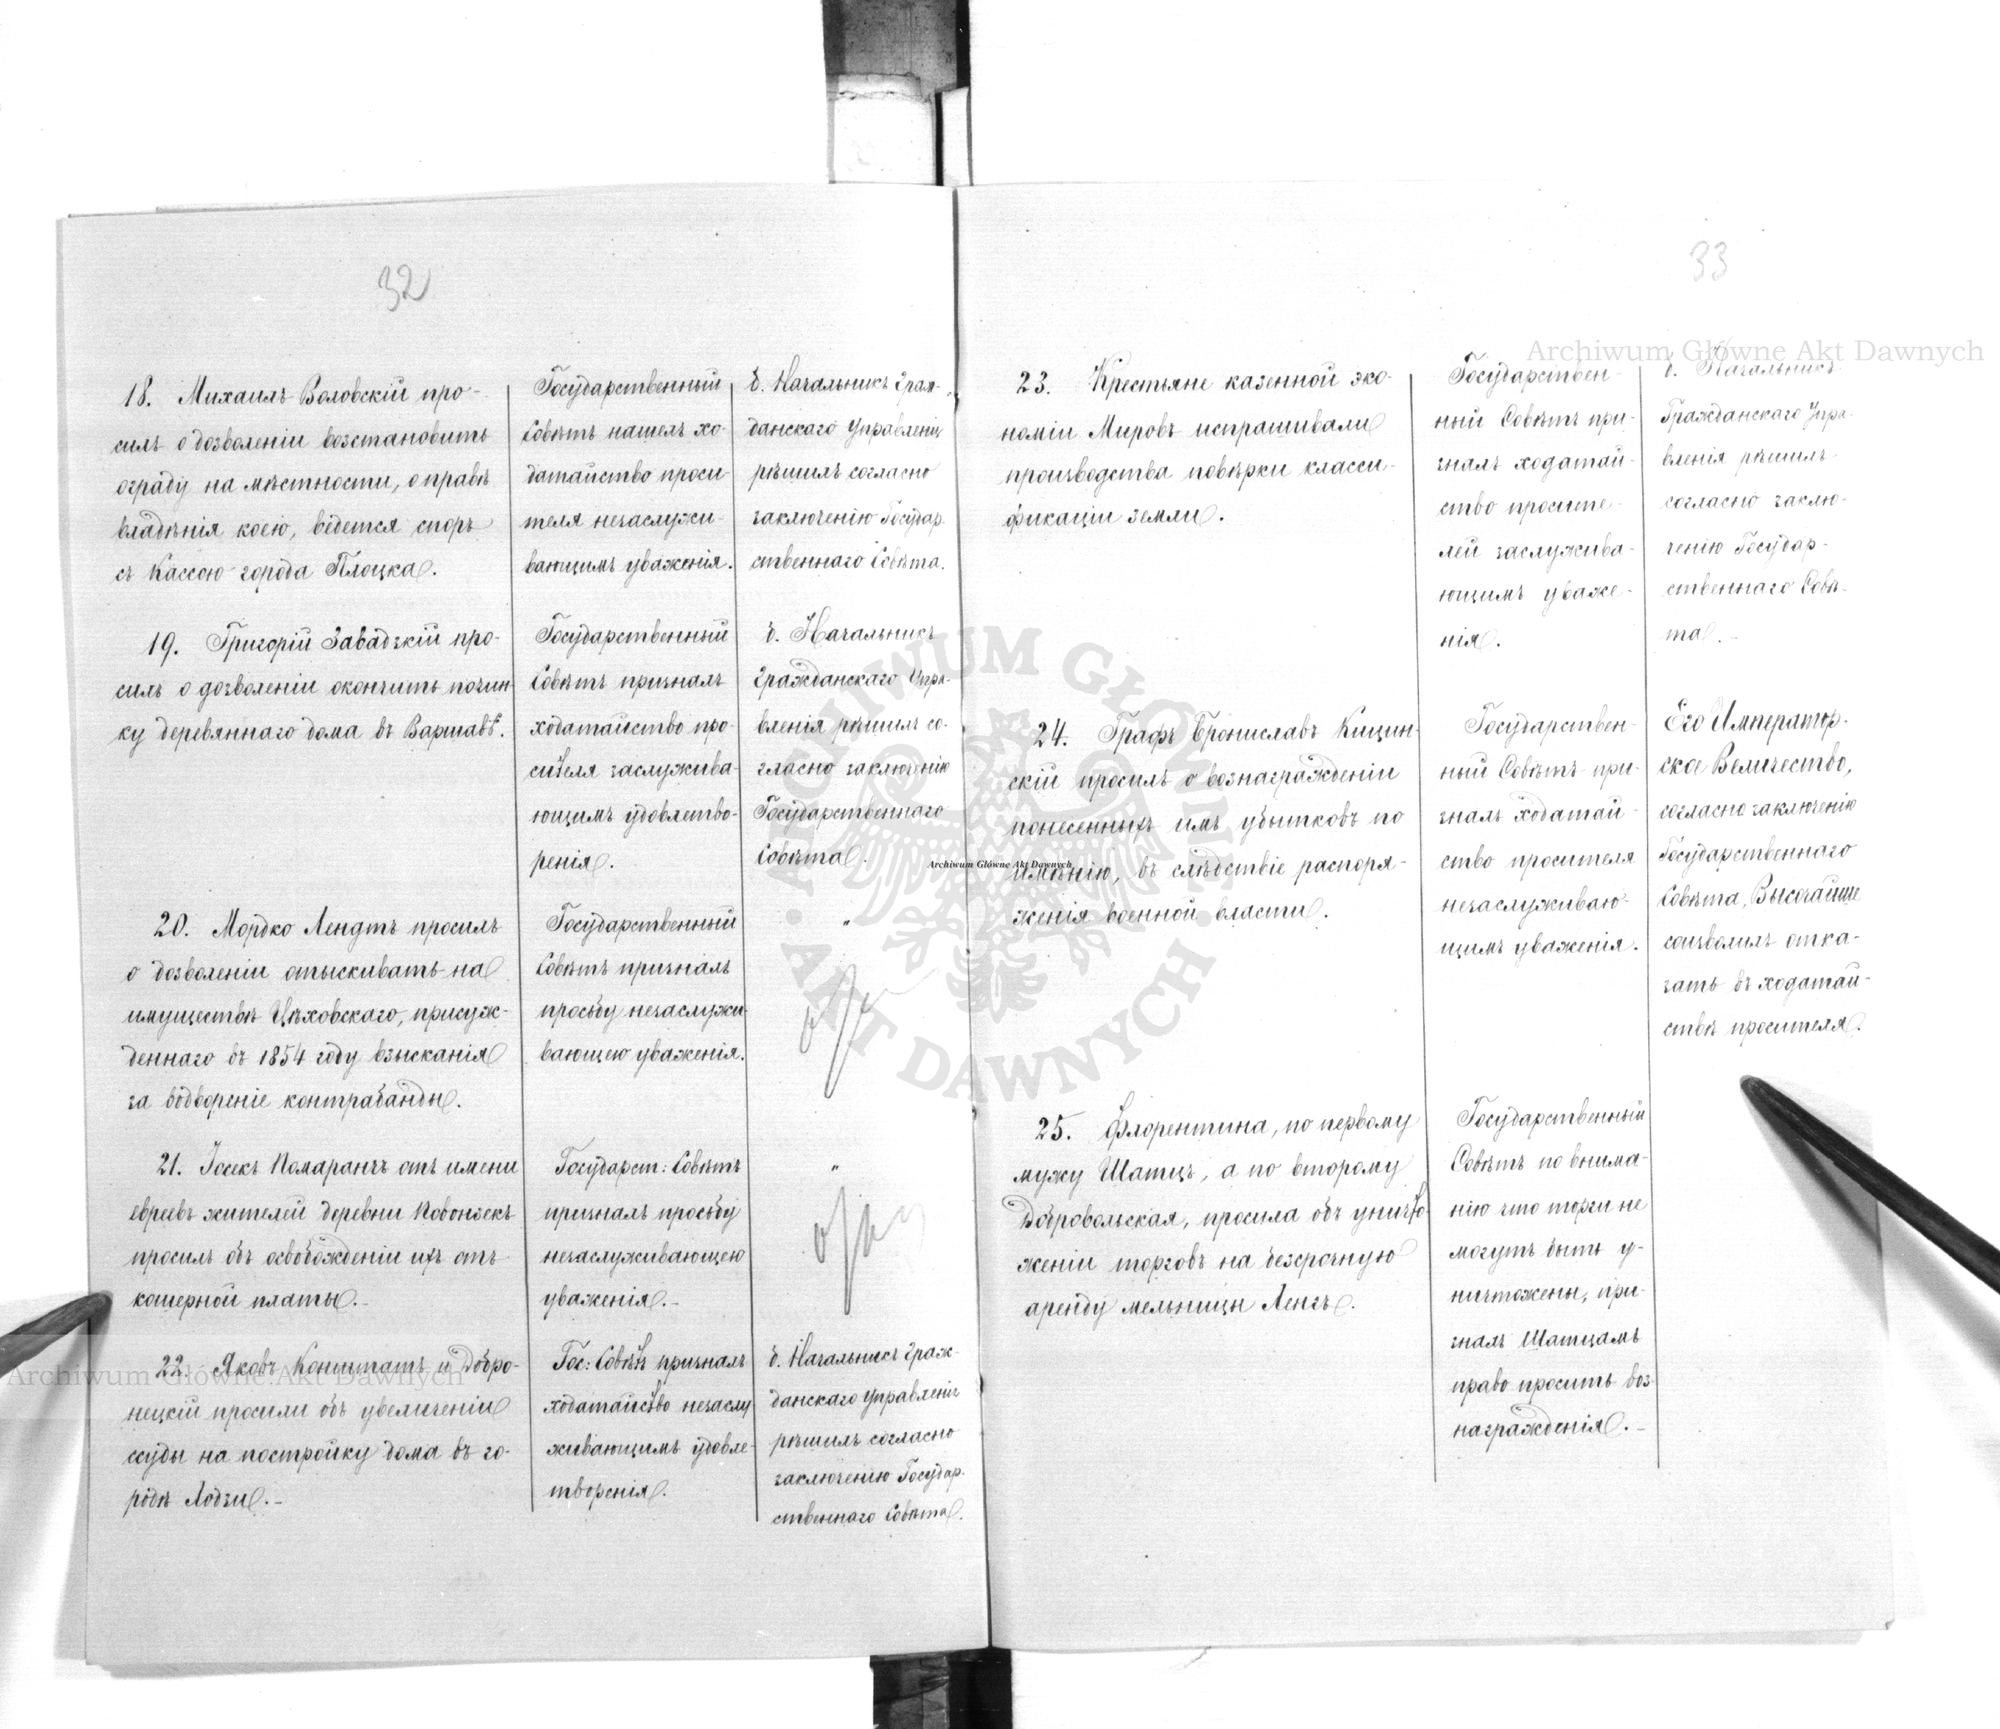 32
18. Михаилъ Воловскій про-
силъ о дозволеніи возстановить
ограду на мѣстности, о правѣ
владѣнія коею, ведется споръ
съ Кассою города Плоцка.
Государственный
Совѣтъ нашелъ хо-
датайство проси-
теля незаслужи-
вающимъ уваженія.
б. Начальникъ Граж-
данскаго Управленія
рѣшилъ согласно
заключенію Государ-
ственнаго Совѣта.
19. Григорій Завадзкій про-
силъ о дозволеніи окончить почин-
ку деревяннаго дома въ Варшавѣ.
Государственный
Совѣтъ призналъ
ходатайство про-
сителя заслужива-
ющимъ удовлетво-
ренія.
б. Начальникъ
Гражданскаго Упра-
вленія рѣшилъ со-
гласно заключенію
Государственнаго
Совѣта.
20. Мордко Лендтъ просилъ
о дозволеніи отыскивать на
имуществѣ Цѣховскаго, присуж-
деннаго въ 1854 году взысканія
за водвореніе контрабанды.
Государственный
Совѣтъ призналъ
просьбу незаслужи-
вающею уваженія.
"
21. Іосекъ Помаранчъ отъ имени
евреевъ жителей деревни Повонзекъ
просилъ объ освобожденіи ихъ отъ
кошерной платы.-
Государст: Совѣтъ
призналъ просьбу
незаслуживающею
уваженія.-
"
22. Яковъ Конштатъ и Добро-
нецкій просили объ увеличеніи
ссуды на постройку дома въ го-
родѣ Лодзи.-
Гос: Совѣтъ призналъ
ходатайство незаслу
живающимъ удовле-
творенія.
б. Начальникъ Граж-
данскаго Управленія
рѣшилъ согласно
заключенію Государ-
ственнаго Совѣта.
33
23. Крестьяне казенной эко-
номіи Мировъ испрашивали
производства повѣрки класси-
фикаціи земли.
Государствен-
ный Совѣтъ при-
зналъ ходатай-
ство просите-
лей заслужива-
ющимъ уваже-
нія.
б. Начальникъ
Гражданскаго Упра-
вленія рѣшилъ
согласно заклю-
ченію Государ-
ственнаго Совѣ-
та.-
24. Графъ Брониславъ Кицин-
скій просилъ о вознагражденіи
понесенныхъ имъ убытковъ по
имѣнію, въ слѣдствіе распоря-
женія военной власти.
Государствен-
ный Совѣтъ при-
зналъ ходатай-
ство просителя
незаслуживаю-
щимъ уваженія.
Его Император-
ское Величество,
согласно заключенію
Государственнаго
Совѣта, Высочайше
соизволилъ отка-
зать въ ходатай-
ствѣ просителя.
25. Флорентина, по первому
мужу Шатцъ, а по второму
Добровольская, просила объ уничто-
женіи торговъ на безсрочную
аренду мельницы Ленгъ.
Государственный
Совѣтъ по внима-
нію что торги не
могутъ быть у-
ничтожены, при-
зналъ Шатцамъ
право просить воз-
награжденія.-
Archiwum Główne Akt Dawnych
Archiwum Główne Akt Dawnych
Archiwum Główne Akt Dawnych
ARCHIWUM GŁÓWNE · AKT DAWNYCH ·